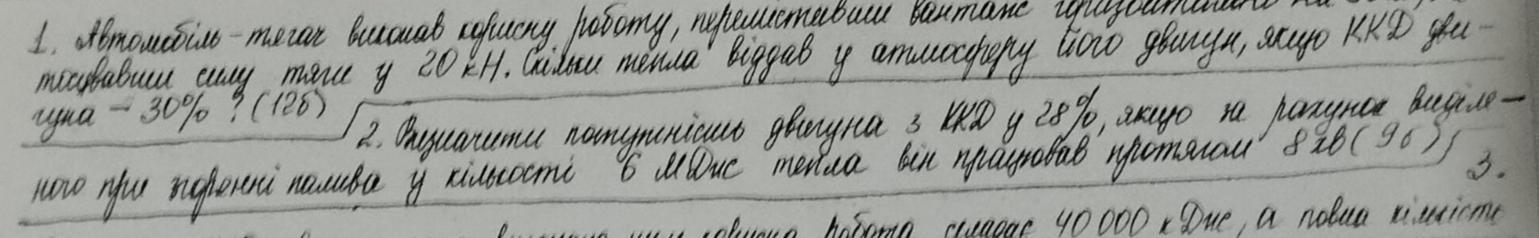 1. Автомобіль-тягач виконав корисну роботу, перемістивши вантаж горизонтально на
тосувавши силу тяги у 20 кН. Скільки тепла віддав у атмосферу його двигун, якщо ККД дви-
гуна – 30% ? (12б)
2. Визначити потужність двигуна з ККД у 28%, якщо за рахунок виділе-
ного при згоранні палива у кількості 6 МДж тепла він працював протягом 8 хв (9б)
3.
корисна робота складає 40 000 кДж, а повна кількість